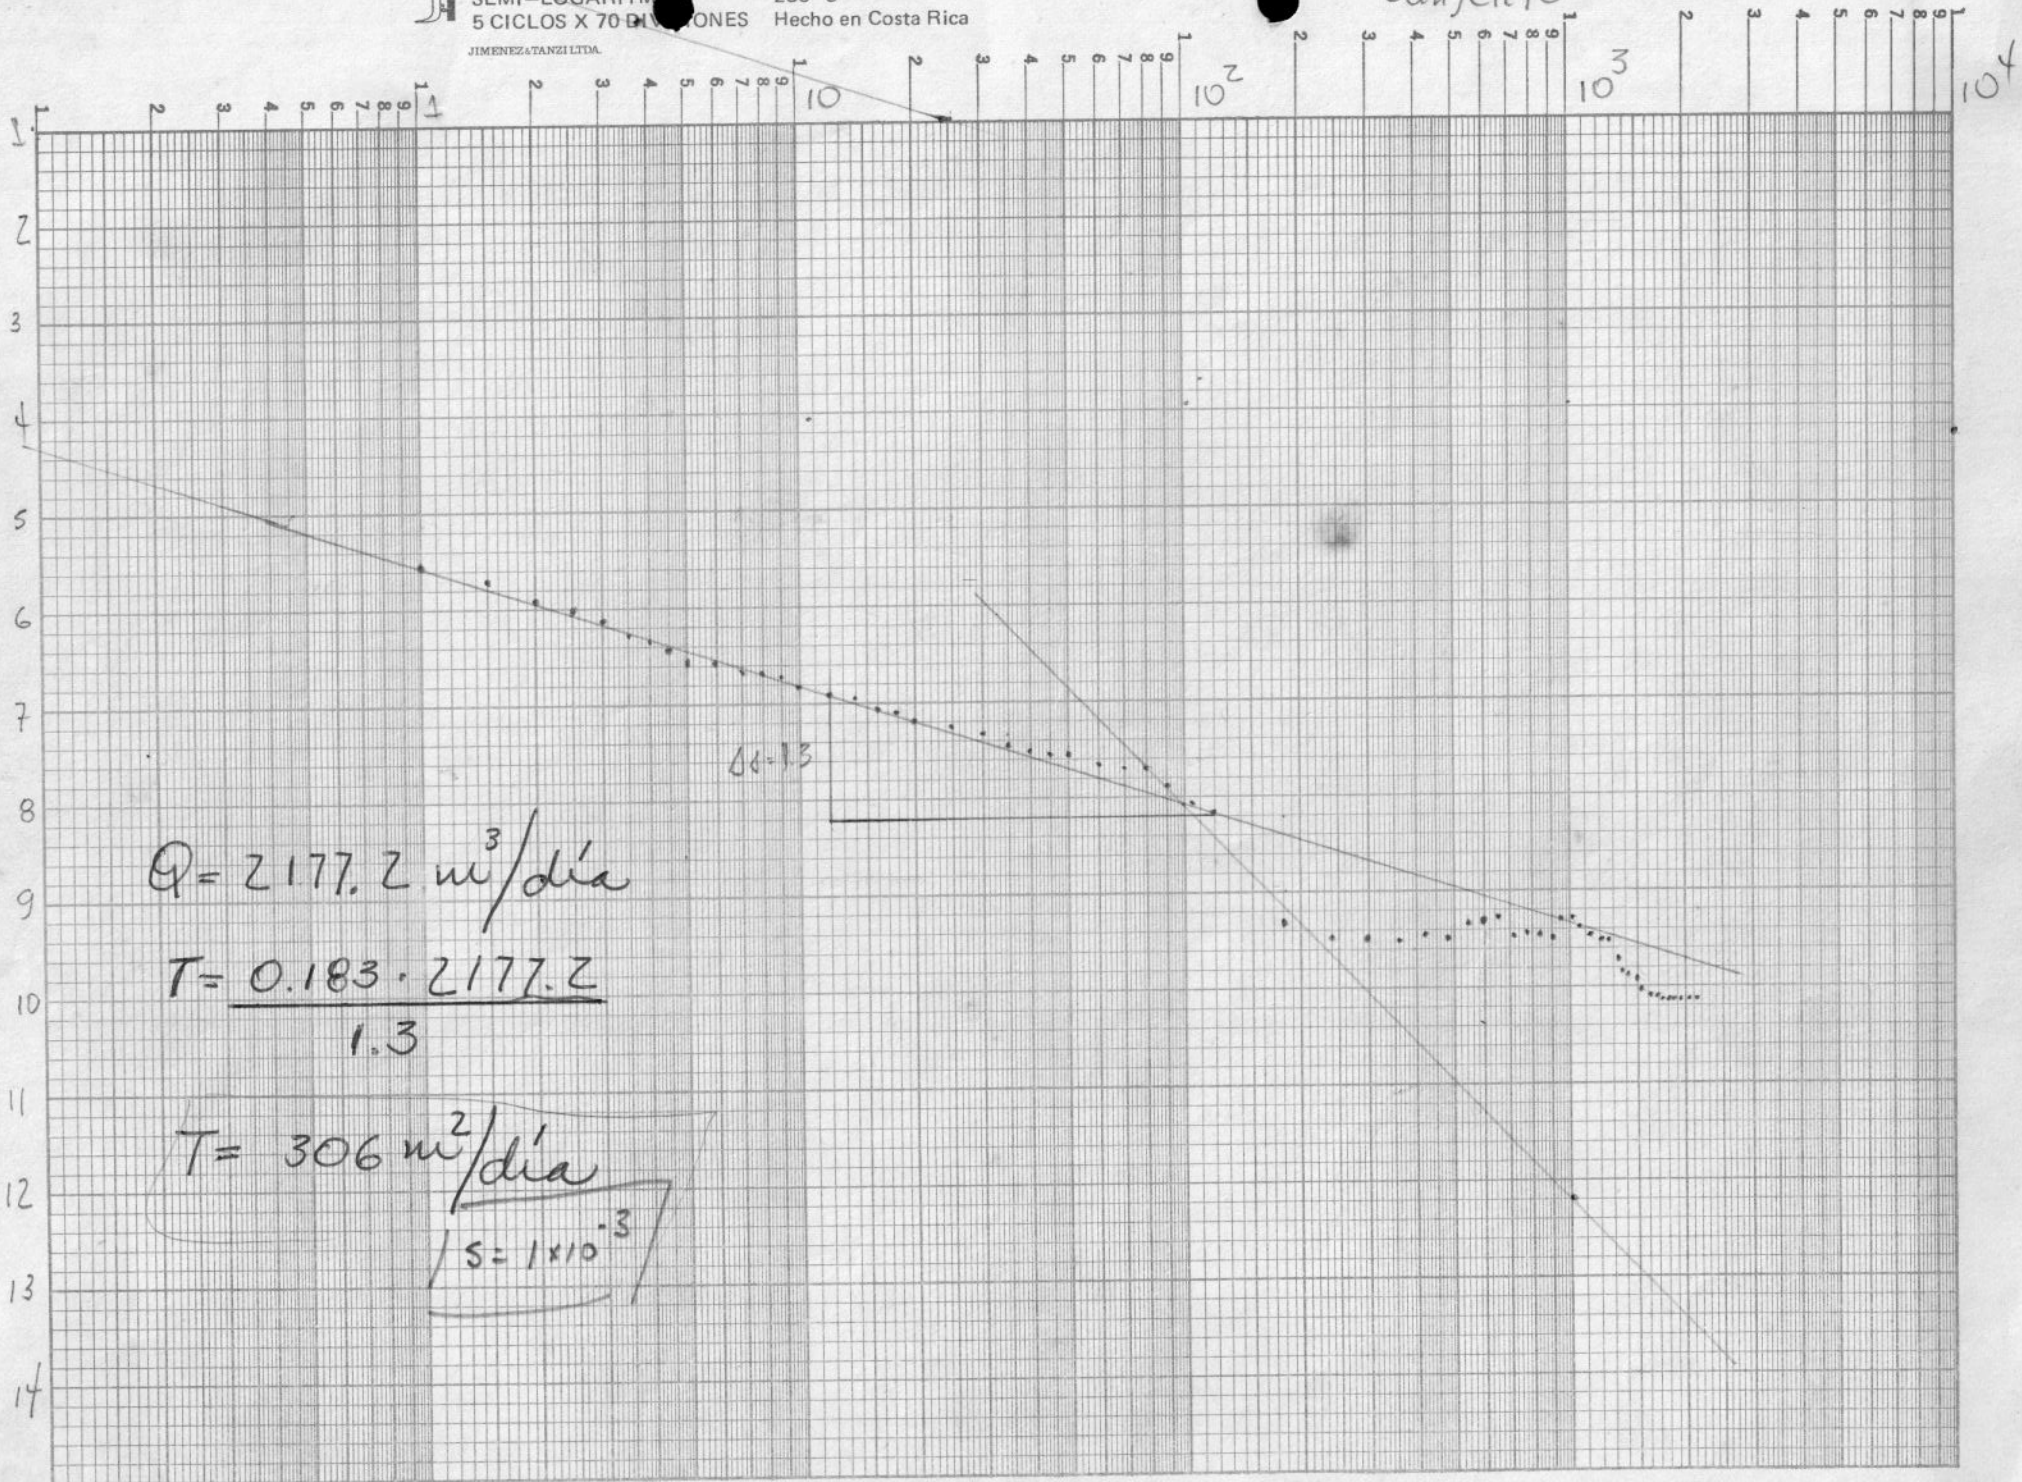 5 CICLOS X 70 DIV IONES Hecho en Costa Rica
JIMENEZ & TANZI LTDA.
1 2 3 4 5 6 7 8 9 1 2 3 4 5 6 7 8 9 1 2 3 4 5 6 7 8 9 1 2 3 4 5 6 7 8 9 1 2 3 4 5 6 7 8 9 1
1 10 10² 10³ 10⁴
1
2
3
4
5
6
7
8
9
10
11
12
13
14
Δs=1.3
Q= 2177.2 m³/día
T= 0.183 · 2177.2
1.3
T= 306 m²/día
S= 1x10⁻³